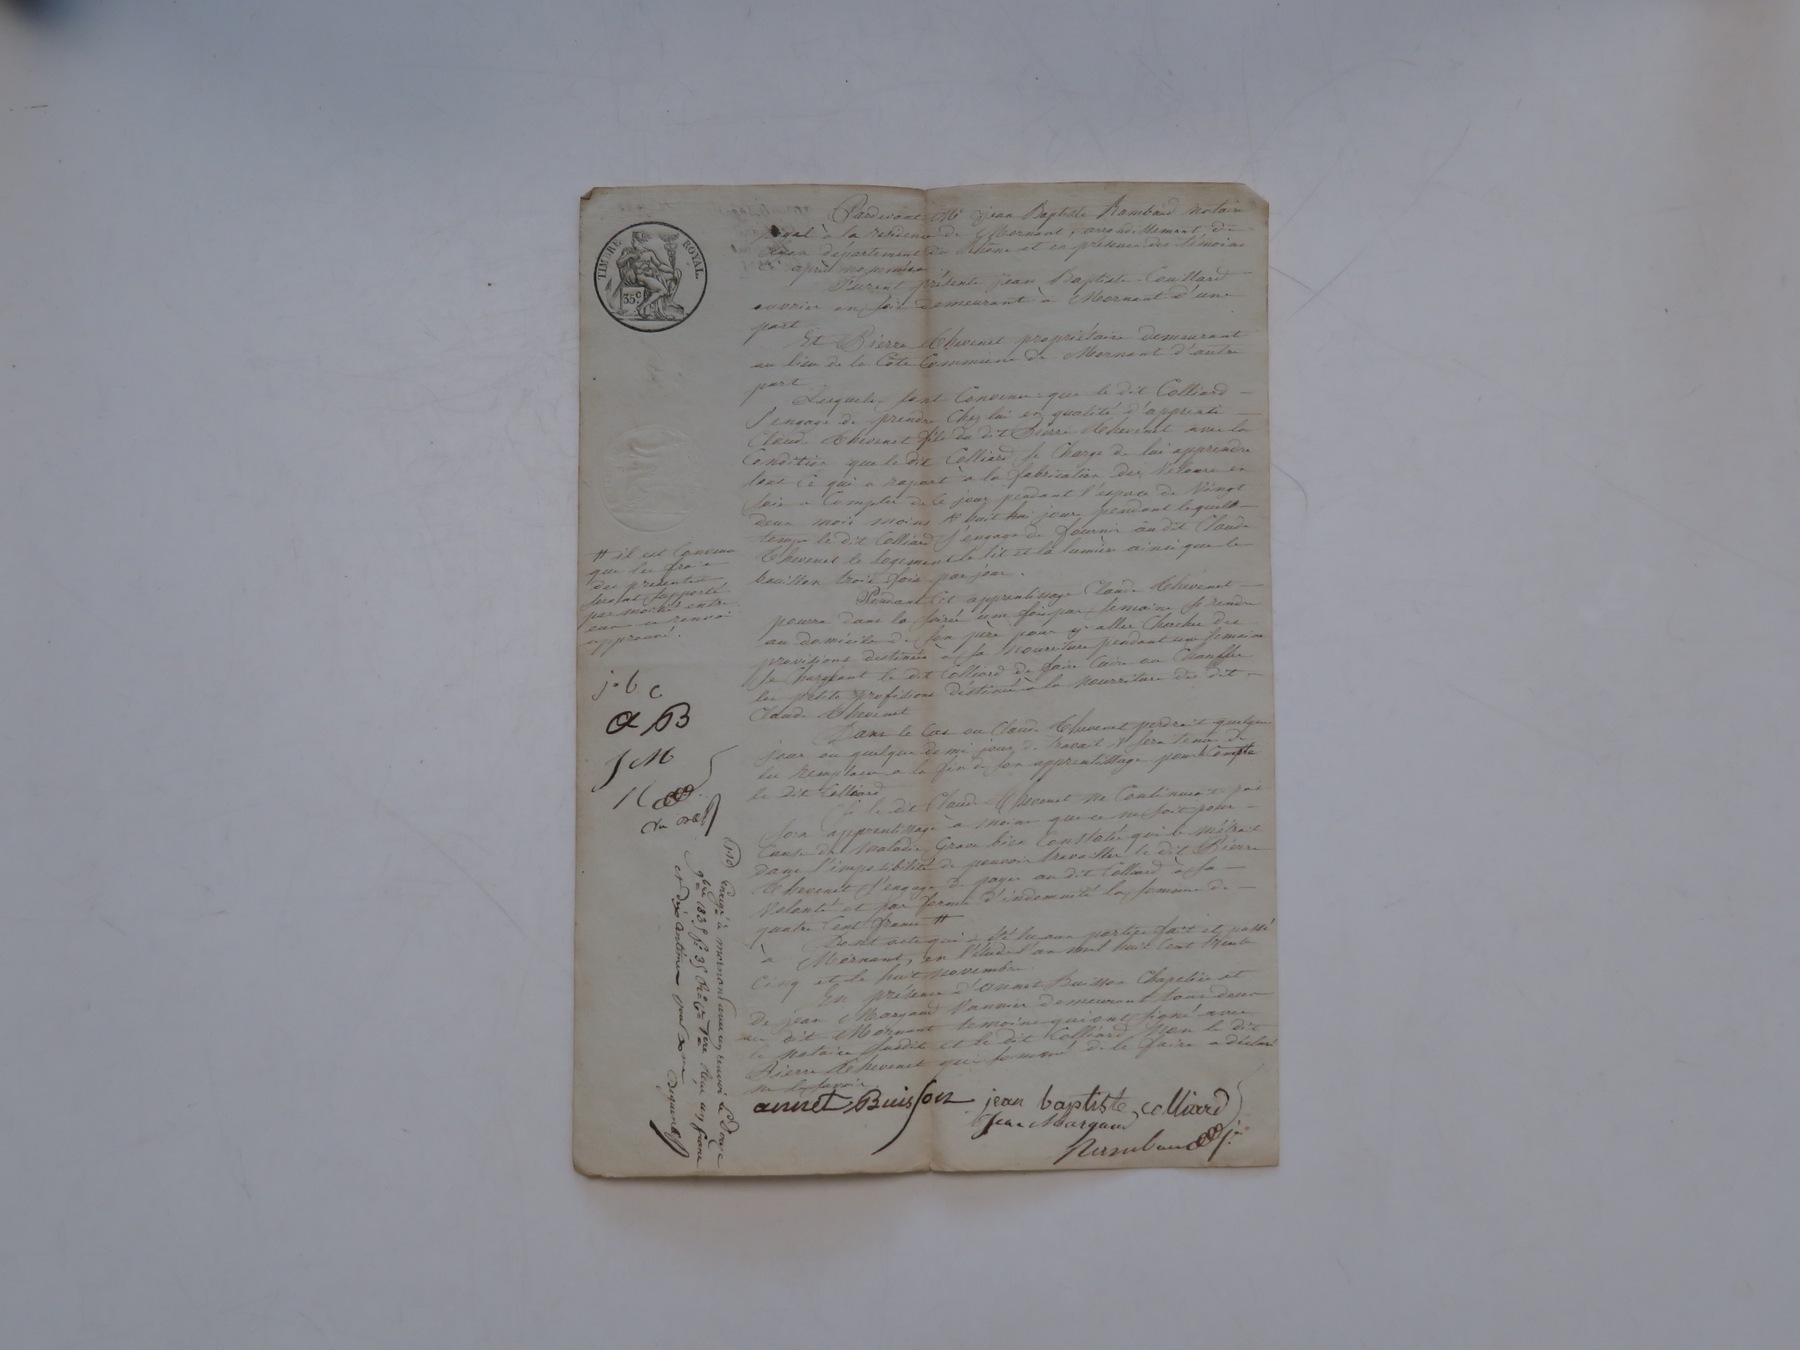 TIMBRE ROYAL.
35 c.
Pardevant Me jean Baptiste Rambaud notaire
royal à la residence de Mornant, arrondissement de
Lyon département du Rhône et en présence des témoins
ci après nommées
Furent présents jean Baptiste Couillard
ouvrier en soie demeurant à Mornant d'une
part
Et Pierre Thevenet propriétaire demeurant
au lieu de la Côte Commune de Mornant d'autre
part
Lesquels sont Convenu que le dit Colliard
s'engage de prendre Chez lui en qualité d'apprenti
Claude Thevenet fils du dit Pierre Thevenet avec la
Condition que le dit Colliard se Charge de lui apprendre
tout ce qui a raport à la fabrication des Velours en
soie a Compter de Ce jour pendant l'espace de Vingt
deux mois moins huit jours pendant lequelle
temps le dit Colliard s'engage de fournir au dit Claude
Thevenet le logement le lit et la lumière ainsi que le
bouillon trois fois par jour.
Pendant Cet apprentissage Claude Thevenet
pourra dans la soirée une fois par semaine se rendre
au domicile de son père pour y aller Chercher des
provisions destinée à sa nourriture pendant une semaine
se Chargeant le dit Colliard de faire Cuire ou Chauffer
les petite profisions déstiné à la nourriture du dit
Claude Thevenet
Dans le Cas ou Claude Thevenet perdrait quelques
jour ou quelque demi jour de travail il sera tenu de
les remplacer a la fin de son apprentissage pour Compte
le dit Colliard
Si le dit Claude Thevenet ne Continuait pas
son apprentissage à moins que ce ne soit pour
Cause de Maladie Grave bien Constatée qui le métrait
dans l'impossibilité de pouvoir travailler le dit Pierre
Thevenet s'engage de payer au dit Colliard à sa
Volonté et par forme d'indemnité la somme de
quatre Cent francs #
Dont acte qui a été lu aux parties fait et passé
à Mornant, en l'étude l'an mil huit Cent trente
Cinq et le huit novembre
En présence d'annet Buisson Chapelier et
de jean Margaud Vannier demeurant tous deux
au dit Mornant temoins qui ont signé avec
le notaire susdit et le dit Colliard Non le dit
Pierre Thevenet qui sommé de le faire a déclaré
ne le savoir.
annet Buisson jean baptiste colliard
Jean Margaud
Rambaud
# il est Convenu
que les frais
des presentes
seront supporté
par moitié entre
eux ce renvoi
approuvé.
j b c
a B
J M
R
Enregé à mornant avec un renvoi le Douze
9bre 1835 fo 35
et dix centimes